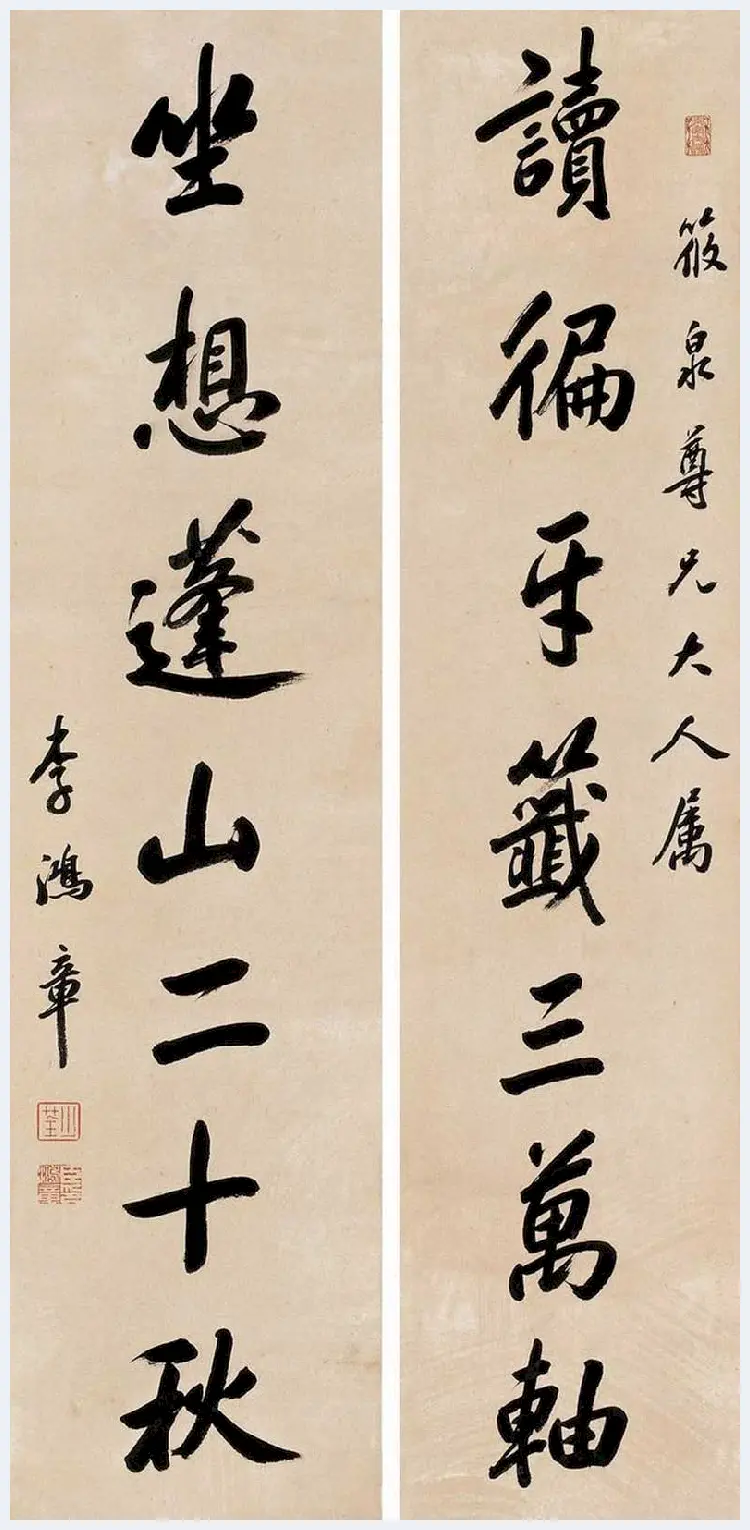 筱泉尊兄大人属
讀徧牙籤三萬軸
坐想蓬山二十秋
李鴻章